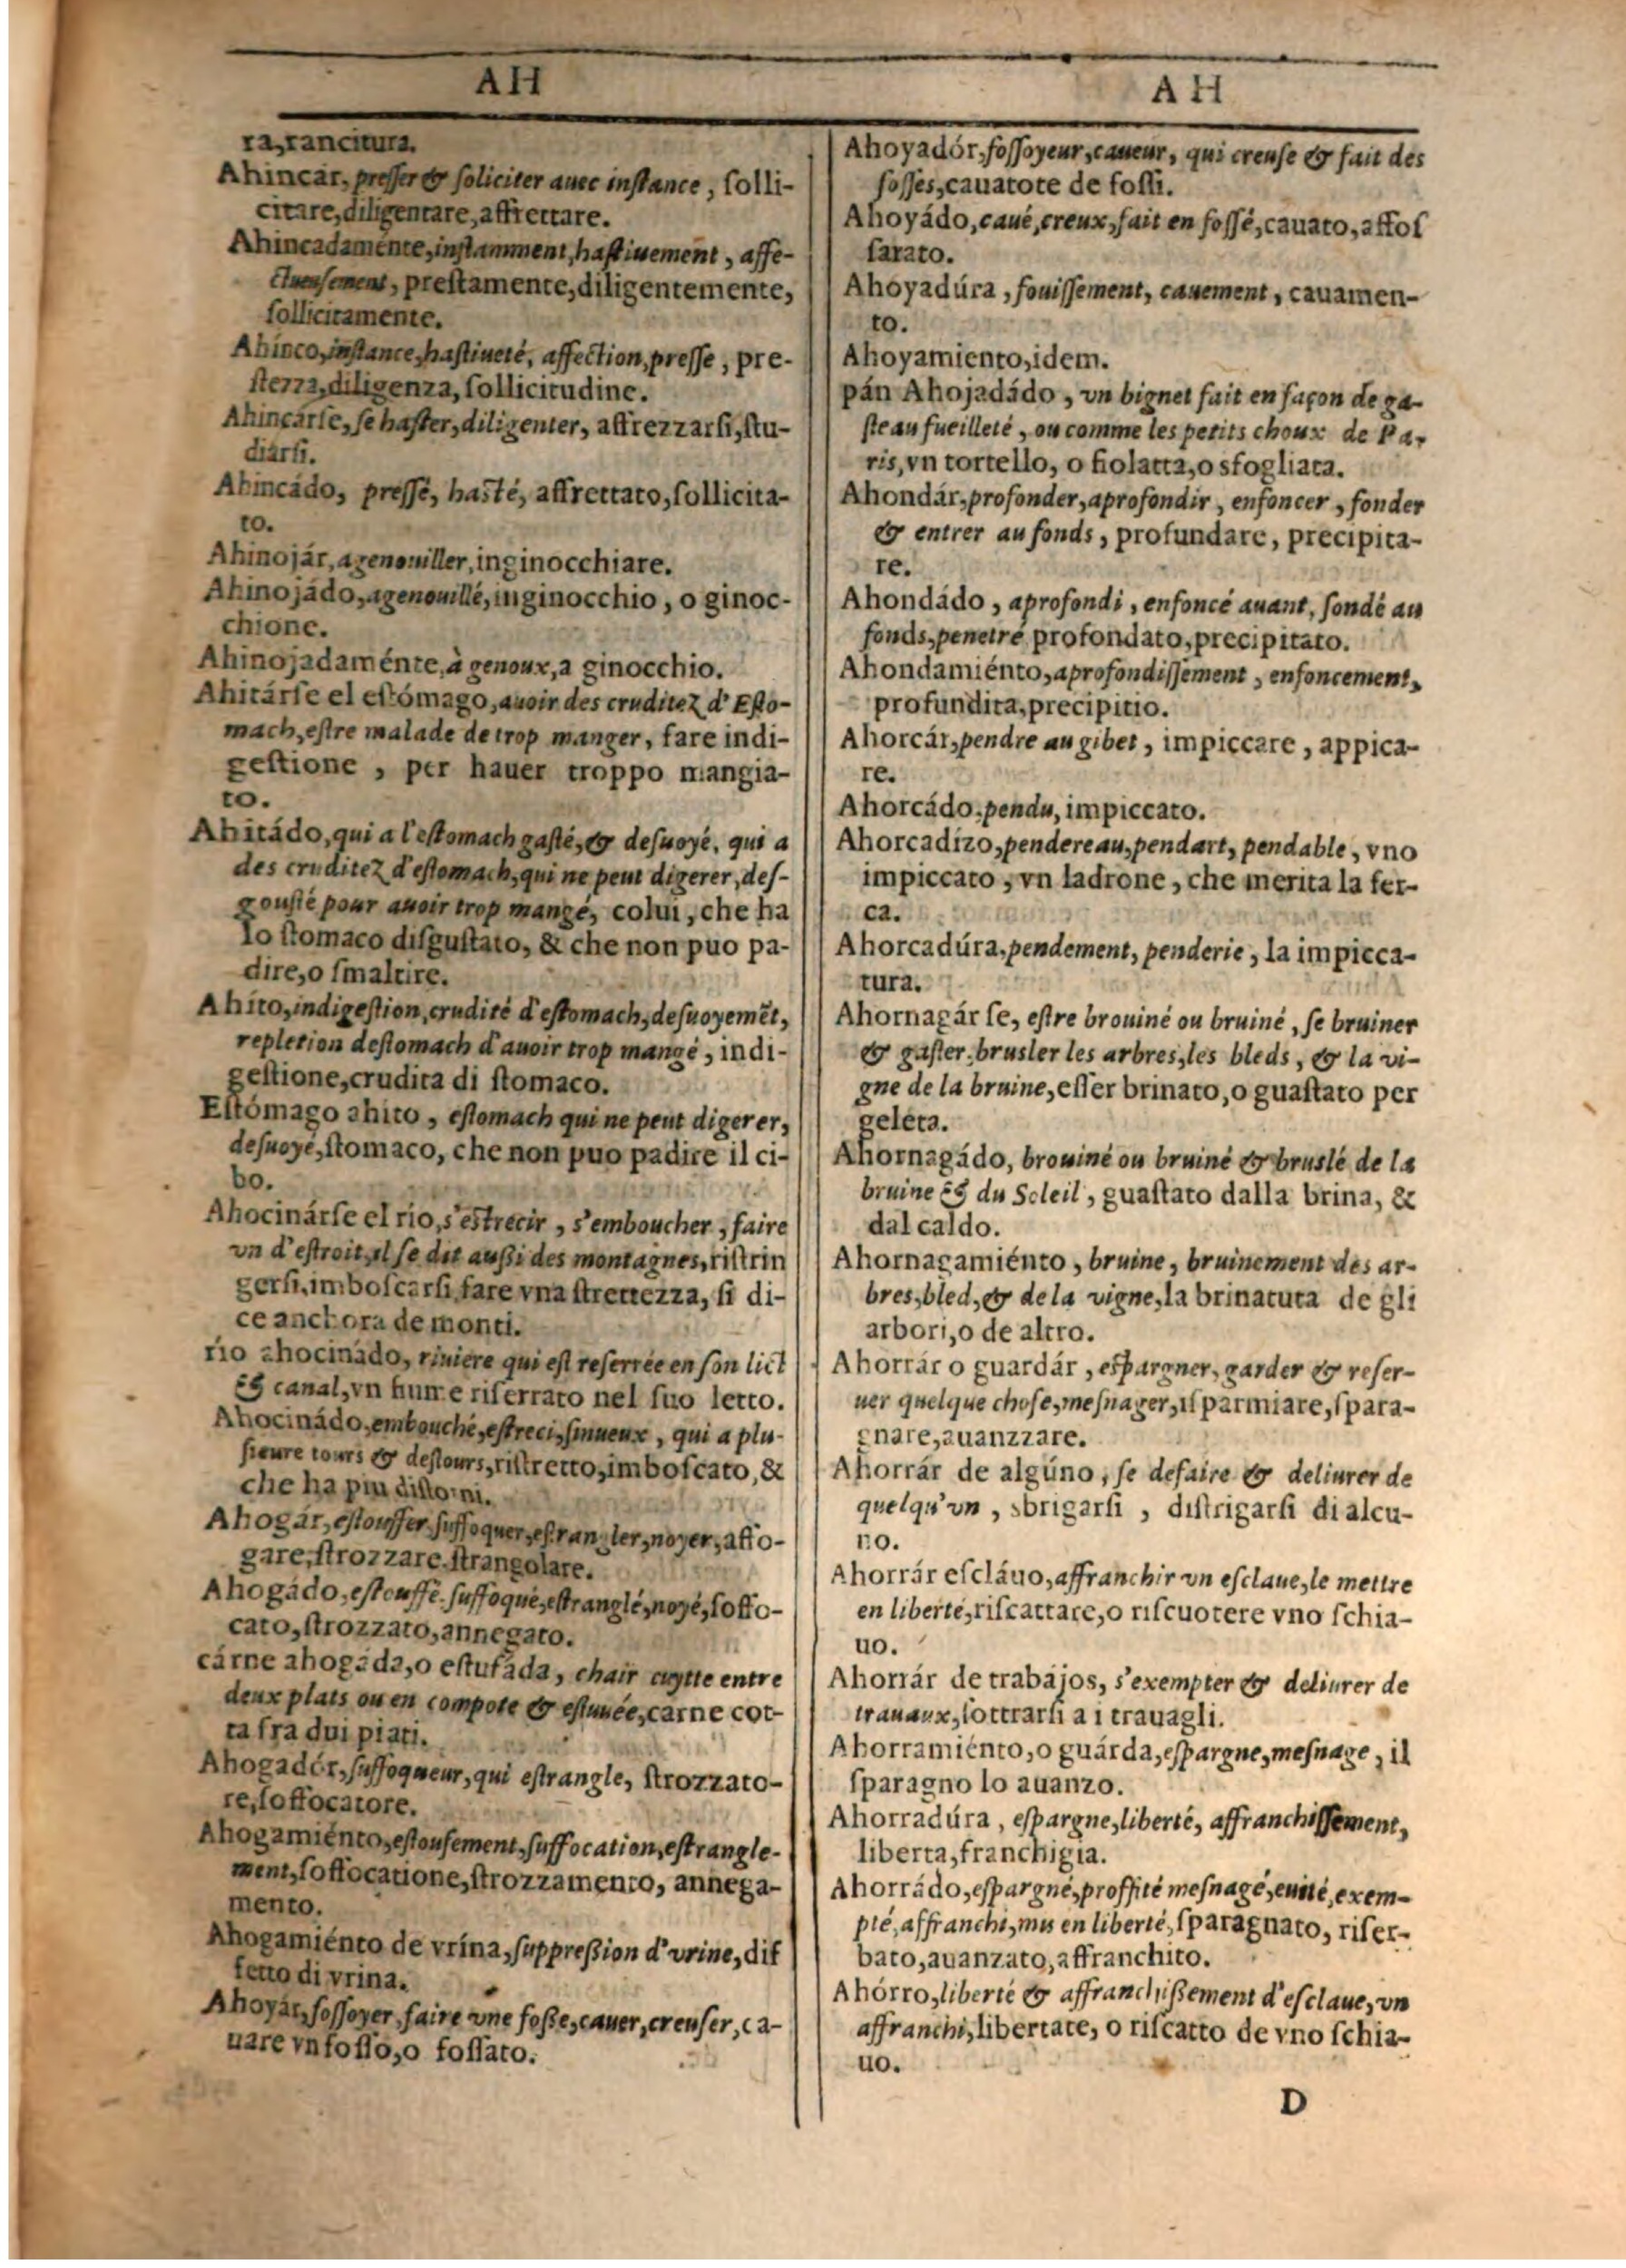 AH
ra,rancitura.
Ahincár, preſſer & ſoliciter auec inſtance, ſolli-
citare,diligentare,affrettare.
Ahincadaménte,inſtamment,haſtiuement, affe-
ctueuſement, preſtamente,diligentemente,
ſollicitamente.
Ahínco,inſtance,haſtiueté, affection,preſſe, pre-
ſtezza,diligenza, ſollicitudine.
Ahincárſe, ſe haſter,diligenter, affrezzarſi,ſtu-
diarſi.
Ahincádo, preſſé, haſté, affrettato,ſollicita-
to.
Ahinojár, agenouiller,inginocchiare.
Ahinojádo,agenouillé,inginocchio, o ginoc-
chione.
Ahinojadaménte,à genoux,a ginocchio.
Ahitárſe el eſtómago,auoir des cruditez d'Eſto-
mach,eſtre malade de trop manger, fare indi-
geſtione, per hauer troppo mangia-
to.
Ahitádo,qui a l'eſtomach gaſté,& deſuoyé, qui a
des cruditez d'eſtomach,qui ne peut digerer,deſ-
gouſté pour auoir trop mangé, colui, che ha
lo ſtomaco diſguſtato, & che non puo pa-
dire,o ſmaltire.
Ahíto,indigeſtion,crudité d'eſtomach,deſuoyemẽt,
repletion deſtomach d'auoir trop mangé, indi-
geſtione,crudita di ſtomaco.
Eſtómago ahito, eſtomach qui ne peut digerer,
deſuoyé,ſtomaco, che non puo padire il ci-
bo.
Ahocinárſe el río,s'eſtrecir, s'emboucher, faire
vn d'eſtroit,il ſe dit auſsi des montagnes,riſtrin
gerſi,imboſcarſi,fare vna ſtrettezza, ſi di-
ce anchora de monti.
río ahocinádo, riuiere qui eſt reſerrée en ſon lict
& canal,vn fiume riſerrato nel ſuo letto.
Ahocinádo,embouché,eſtreci,ſinueux, qui a plu-
ſieure tours & deſtours,riſtretto,imboſcato,&
che ha piu diſtorni.
Ahogár,eſtouffer,ſuffoquer,eſtrangler,noyer,affo-
gare,ſtrozzare,ſtrangolare.
Ahogádo,eſtouffé,ſuffoqué,eſtranglé,noyé,ſoffo-
cato,ſtrozzato,annegato.
cárne ahogáda,o eſtufáda, chair cuytte entre
deux plats ou en compote & eſtuuée,carne cot-
ta fra dui piati.
Ahogadór,ſuffoqueur,qui eſtrangle, ſtrozzato-
re,ſoffocatore.
Ahogamiénto,eſtouſement,ſuffocation,eſtrangle-
ment,ſoffocatione,ſtrozzamento, annega-
mento.
Ahogamiénto de vrína,ſuppreſsion d'vrine,dif
fetto di vrina.
Ahoyár,foſſoyer,faire vne foſſe,cauer,creuſer,ca-
uare vn foſſo,o foſſato.
AH
Ahoyadór,foſſoyeur,caueur, qui creuſe & fait des
foſſés,cauatote de foſſi.
Ahoyádo,caué,creux,fait en foſſé,cauato,affoſ
ſarato.
Ahoyadúra,fouiſſement, cauement, cauamen-
to.
Ahoyamiento,idem.
pán Ahojadádo, vn bignet fait en façon de ga-
ſteau fueilleté, ou comme les petits choux de Pa-
ris,vn tortello, o fiolatta,o sfogliata.
Ahondár,profonder,aprofondir, enfoncer, fonder
& entrer au fonds, profundare, precipita-
re.
Ahondádo, aprofondi, enfoncé auant, ſondé au
fonds,penetré profondato,precipitato.
Ahondamiénto,aprofondiſſement, enfoncement,
profundita,precipitio.
Ahorcár,pendre au gibet, impiccare, appica-
re.
Ahorcádo,pendu,impiccato.
Ahorcadízo,pendereau,pendart, pendable, vno
impiccato, vn ladrone, che merita la fer-
ca.
Ahorcadúra,pendement, penderie, la impicca-
tura.
Ahornagár ſe, eſtre brouiné ou bruiné, ſe bruiner
& gaſter,bruſler les arbres,les bleds, & la vi-
gne de la bruine,eſſer brinato,o guaſtato per
geleta.
Ahornagádo, brouiné ou bruiné & bruslé de la
bruine & du Soleil, guaſtato dalla brina, &
dal caldo.
Ahornagamiénto, bruine, bruinement des ar-
bres,bled,& de la vigne,la brinatuta de gli
arbori,o de altro.
Ahorrár o guardár, eſpargner, garder & reſer-
uer quelque choſe,meſnager,iſparmiare,ſpara-
gnare,auanzzare.
Ahorrár de algúno, ſe defaire & deliurer de
quelqu'vn, sbrigarſi, diſtrigarſi di alcu-
no.
Ahorrár eſcláuo,affranchir vn eſclaue,le mettre
en liberté,riſcattare,o riſcuotere vno ſchia-
uo.
Ahorrár de trabájos, s'exempter & deliurer de
trauaux,ſottrarſi a i trauagli.
Ahorramiénto,o guárda,eſpargne,meſnage, il
ſparagno lo auanzo.
Ahorradúra, eſpargne,liberté, affranchiſſement,
liberta,franchigia.
Ahorrádo,eſpargné,proffité meſnagé,euité,exem-
pté,affranchi,mis en liberté,ſparagnato, riſer-
bato,auanzato,affranchito.
Ahórro,liberté & affranchiſsement d'eſclaue,vn
affranchi,libertate, o riſcatto de vno ſchia-
uo.
D